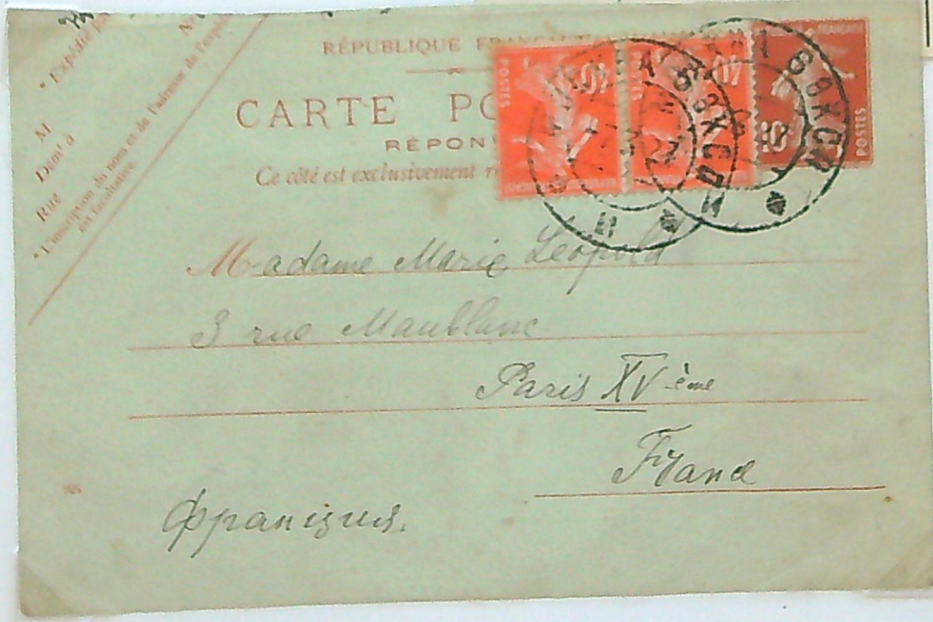 RÉPUBLIQUE FRANÇAI
CARTE PO
RÉPON
Ce côté est exclusivement r
* Expédié p
N°
M
Dem^t à
Rue
* L'inscription du nom et de l'adresse de l'expé
est facultative.
POSTES
40
POSTES
40
FRANÇAISE
10
POSTES
Madame Marie Leopold
3 rue Maublanc
Paris XV ème
France
Франция.